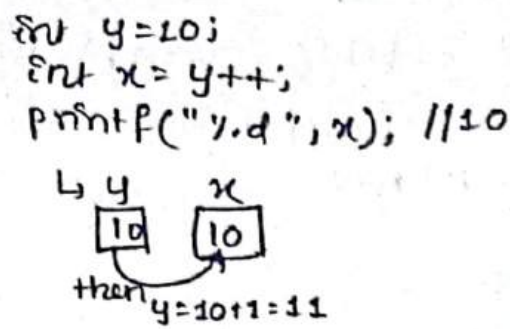 int y=10;
int x= y++;
printf("%d", x); //10
↳ y x
10 10
then y=10+1=11